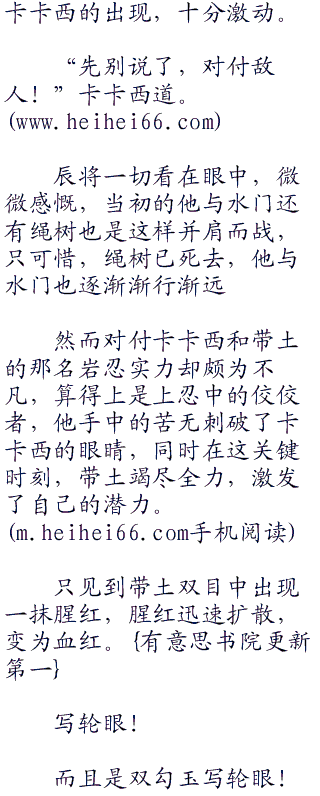 卡卡西的出现，十分激动。
“先别说了，对付敌
人！”卡卡西道。
(www.heihei66.com)
辰将一切看在眼中，微
微感慨，当初的他与水门还
有绳树也是这样并肩而战，
只可惜，绳树已死去，他与
水门也逐渐渐行渐远
然而对付卡卡西和带土
的那名岩忍实力却颇为不
凡，算得上是上忍中的佼佼
者，他手中的苦无刺破了卡
卡西的眼睛，同时在这关键
时刻，带土竭尽全力，激发
了自己的潜力。
(m.heihei66.com手机阅读)
只见到带土双目中出现
一抹腥红，腥红迅速扩散，
变为血红。{有意思书院更新
第一}
写轮眼！
而且是双勾玉写轮眼！